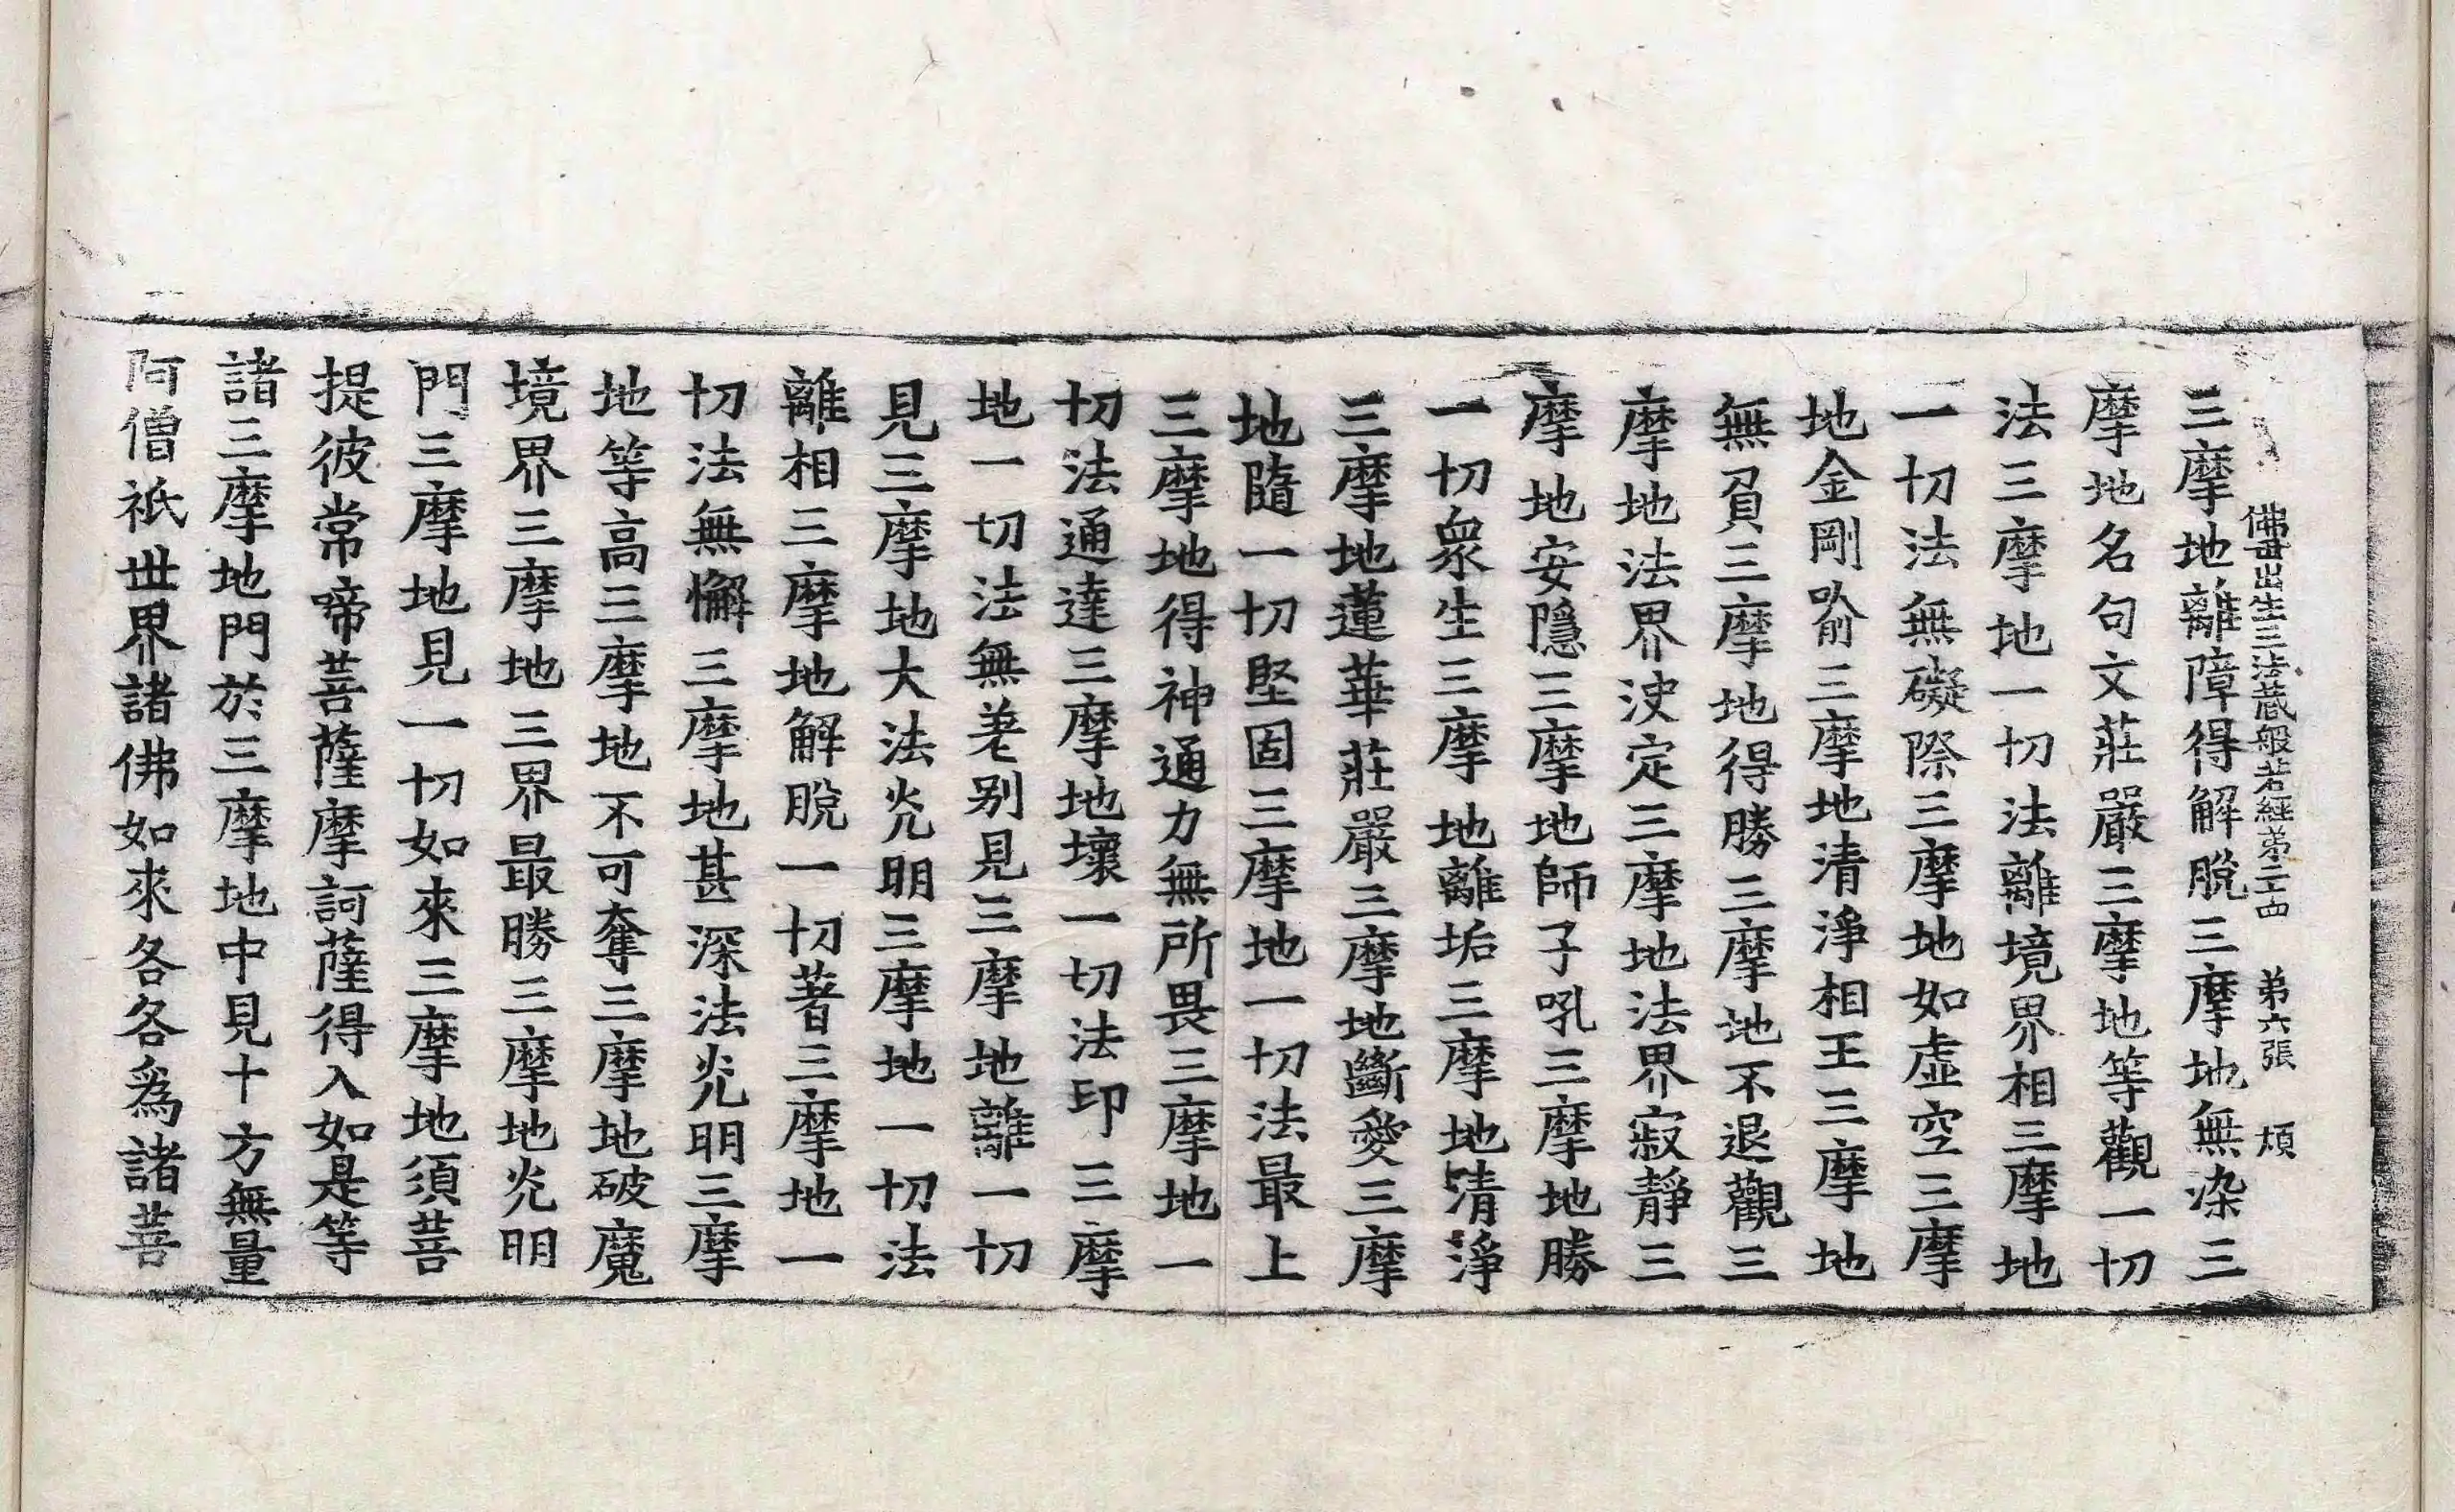 佛母出生三法藏般若經第二四 第六張 煩
三摩地離障得解脫三摩地無染三
摩地名句文莊嚴三摩地等觀一切
法三摩地一切法離境界相三摩地
一切法無礙際三摩地如虛空三摩
地金剛喻三摩地清淨相王三摩地
無負三摩地得勝三摩地不退觀三
摩地法界決定三摩地法界寂靜三
摩地安隱三摩地師子吼三摩地勝
一切衆生三摩地離垢三摩地清淨
三摩地蓮華莊嚴三摩地斷愛三摩
地隨一切堅固三摩地一切法最上
三摩地得神通力無所畏三摩地一
切法通達三摩地壞一切法印三摩
地一切法無差别見三摩地離一切
見三摩地大法光明三摩地一切法
離相三摩地解脫一切著三摩地一
切法無懈三摩地甚深法光明三摩
地等高三摩地不可奪三摩地破魔
境界三摩地三界最勝三摩地光明
門三摩地見一切如來三摩地須菩
提彼常啼菩薩摩訶薩得入如是等
諸三摩地門於三摩地中見十方無量
阿僧祇世界諸佛如來各各爲諸菩